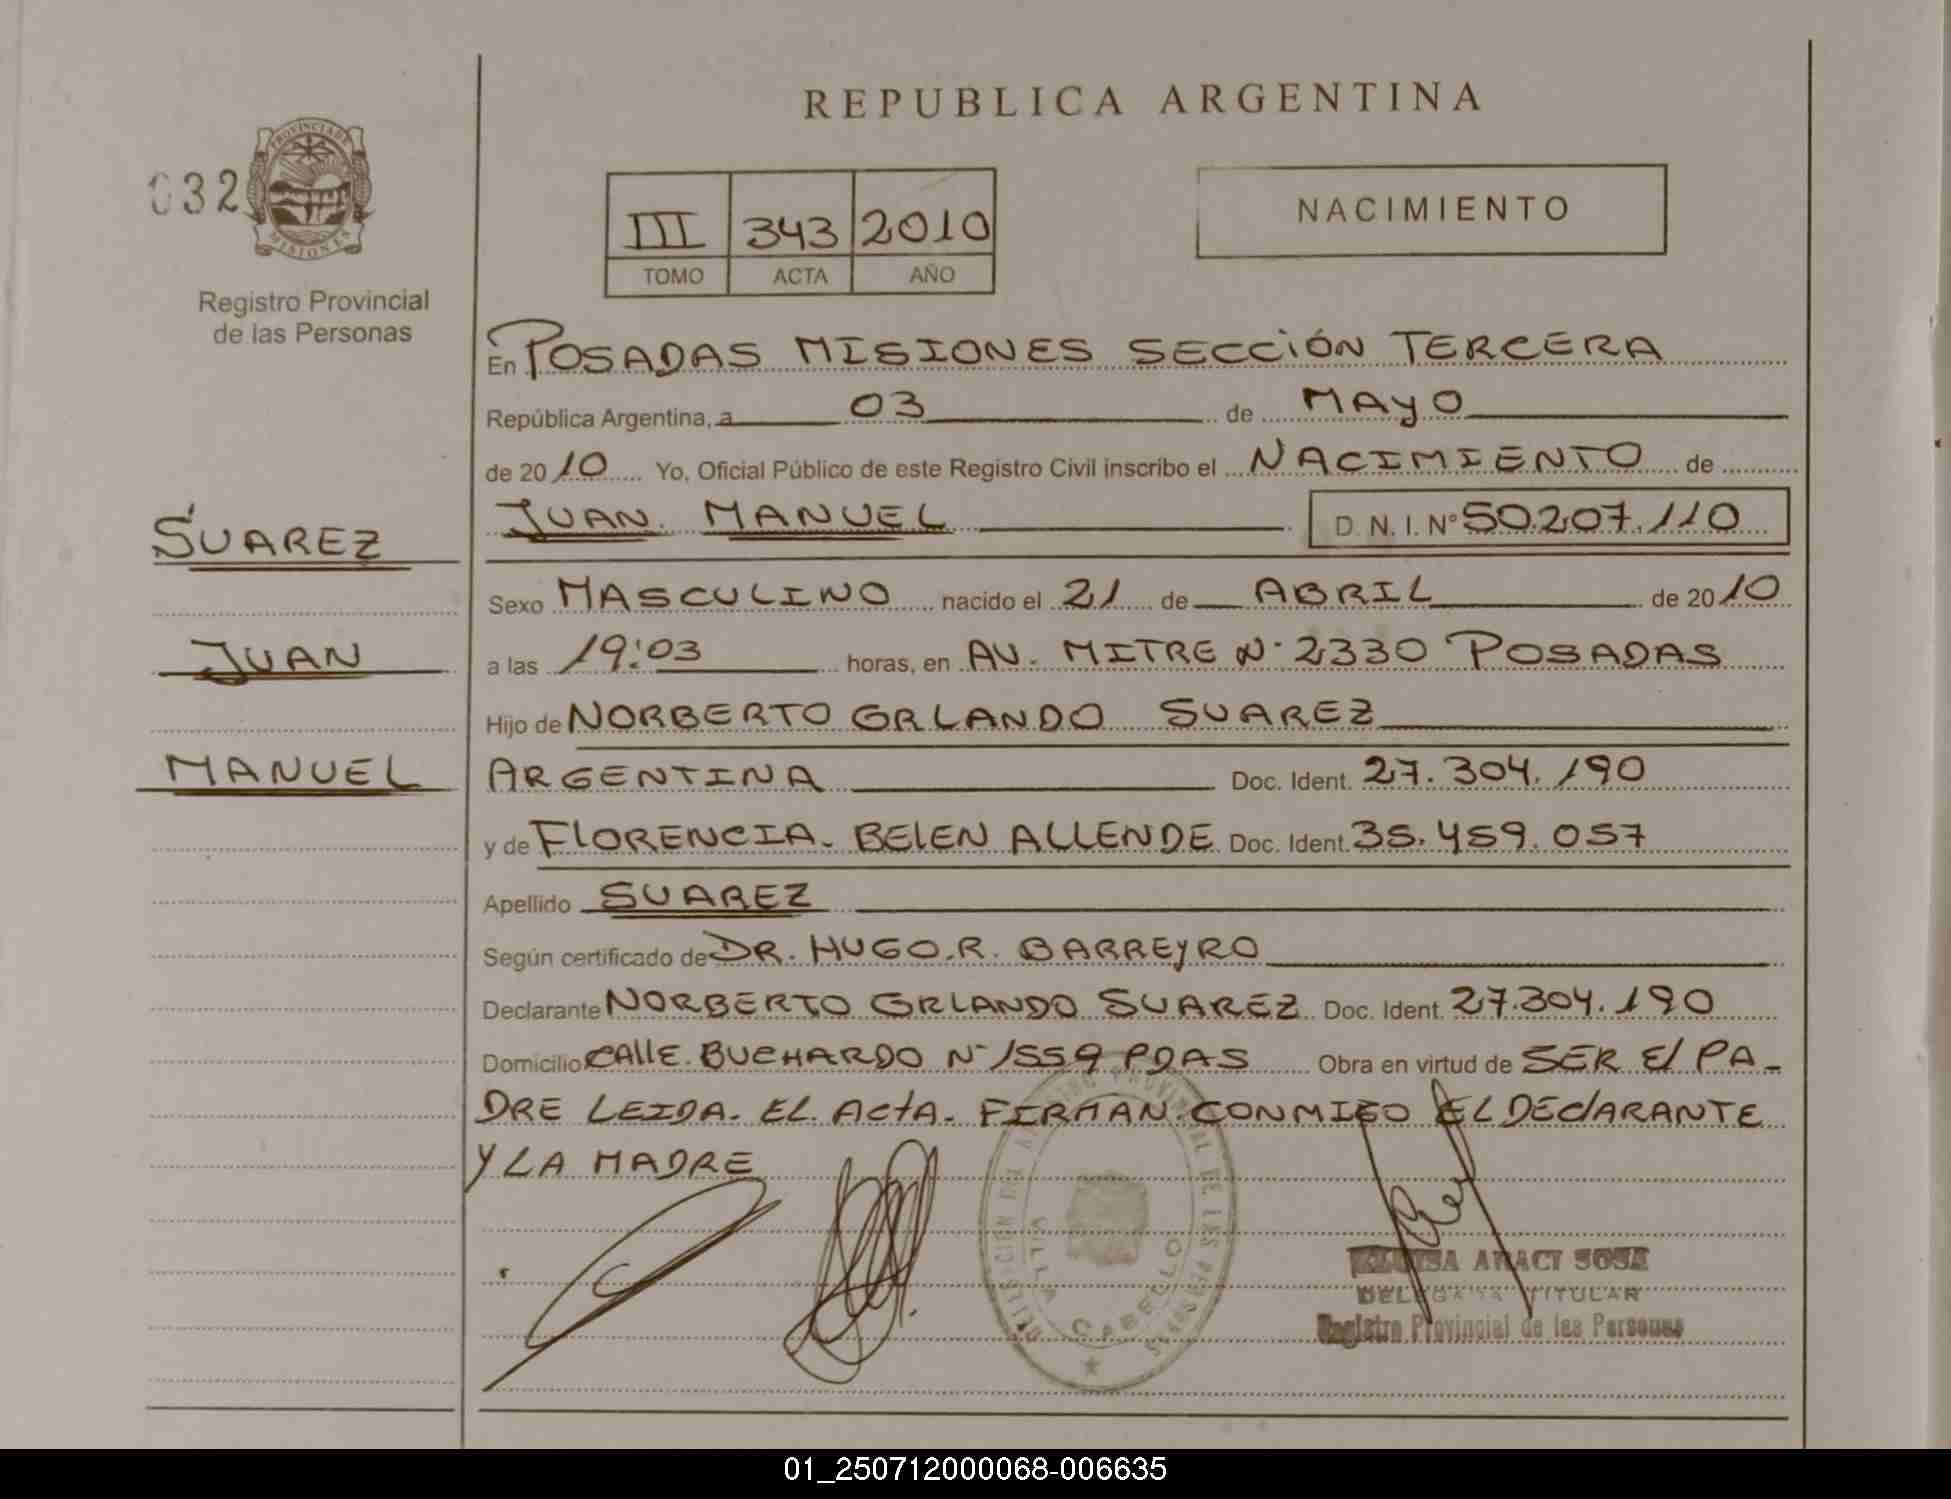 REPUBLICA ARGENTINA
032
PROVINCIA DE
MISIONES
Registro Provincial
de las Personas
III 343 2010
TOMO ACTA AÑO
NACIMIENTO
En POSADAS MISIONES SECCIÓN TERCERA
República Argentina, a 03 de MAYO
de 2010 Yo, Oficial Público de este Registro Civil inscribo el NACIMIENTO de
JUAN MANUEL D. N. I. N° 50.207.110
SUAREZ
Sexo MASCULINO nacido el 21 de ABRIL de 2010
JUAN
a las 19:03 horas, en AV. MITRE N° 2330 POSADAS
Hijo de NORBERTO ORLANDO SUAREZ
MANUEL
ARGENTINA Doc. Ident. 27.304.190
y de FLORENCIA BELEN ALLENDE Doc. Ident. 35.459.057
Apellido SUAREZ
Según certificado de DR. HUGO.R. BARREYRO
Declarante NORBERTO ORLANDO SUAREZ Doc. Ident. 27.304.190
Domicilio CALLE BUCHARDO N° 1559 PDAS Obra en virtud de SER El PA-
DRE LEIDA EL ACTA FIRMAN CONMIGO EL DECLARANTE
Y LA MADRE
PROVINCIAL DE LAS PERSONAS
VILLA CABELLO
ARACI SOSA
DELEGADA TITULAR
Registro Provincial de las Personas
01_250712000068-006635